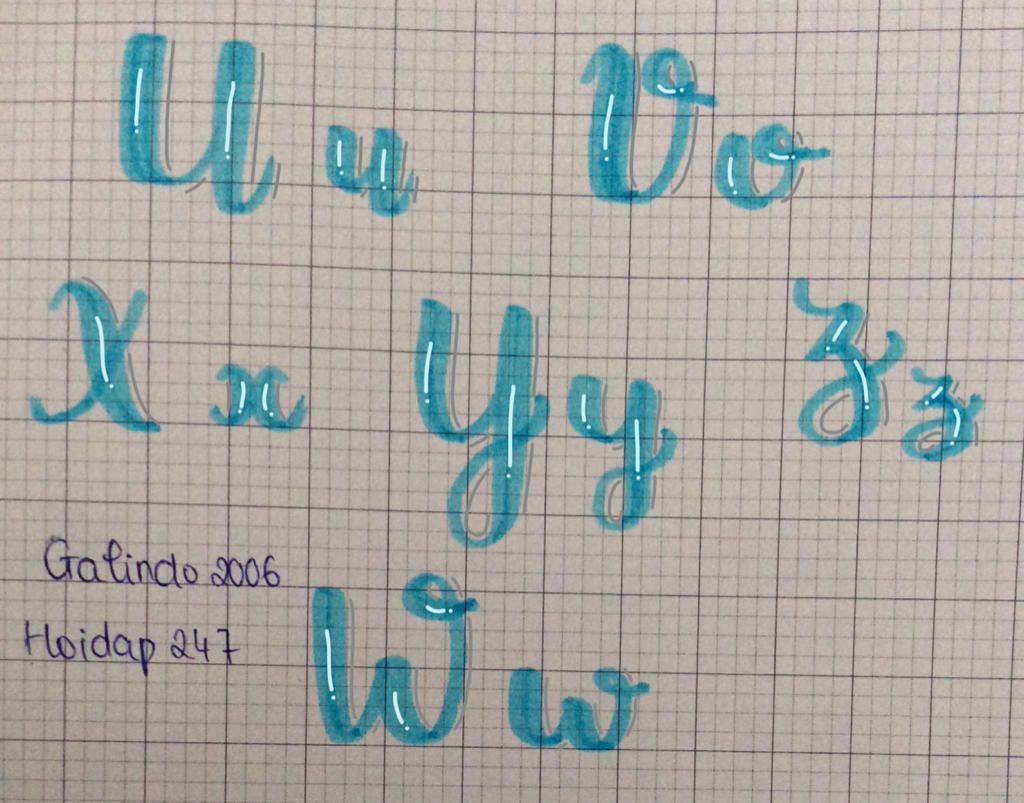 U u V v
X x Y y Z z
Galindo 2006
Hoidap 247
W w